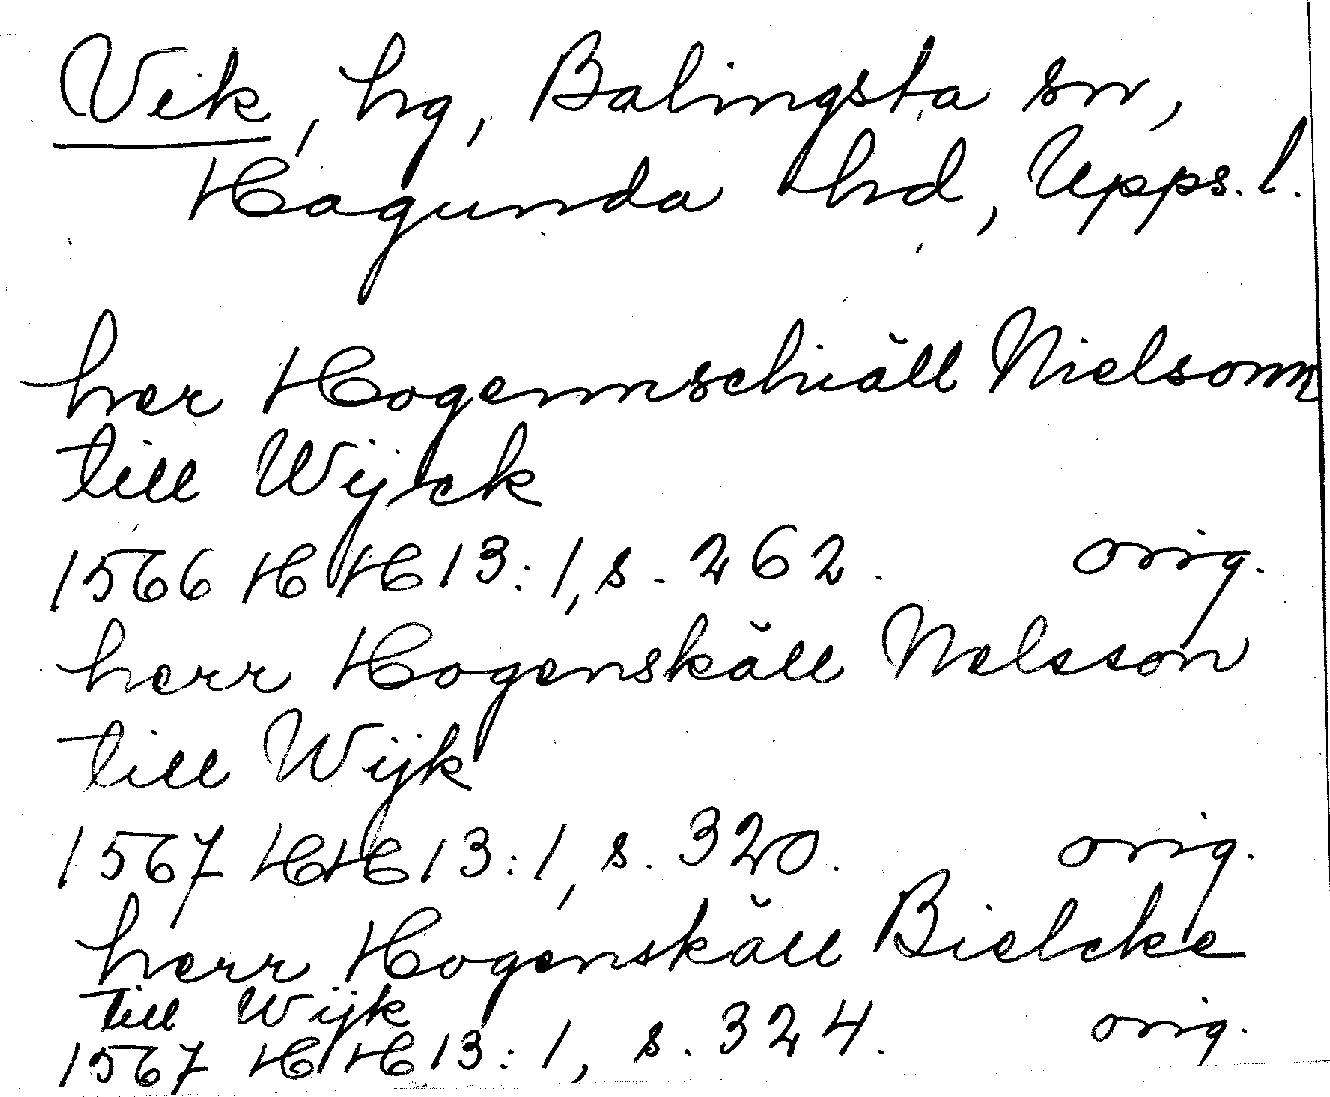 Vik, hg, Balingsta sn,
Hagunda hd, Upps. l.
her Hogennschiäll Nielsonn
till Wijck
1566 HH 13:1, s. 262. orig.
herr Hogenskäll Nelsson
till Wijk
1567 HH 13:1, s. 320. orig.
herr Hogenskäll Bielcke
till Wijk
1567 HH 13:1, s. 324. orig.